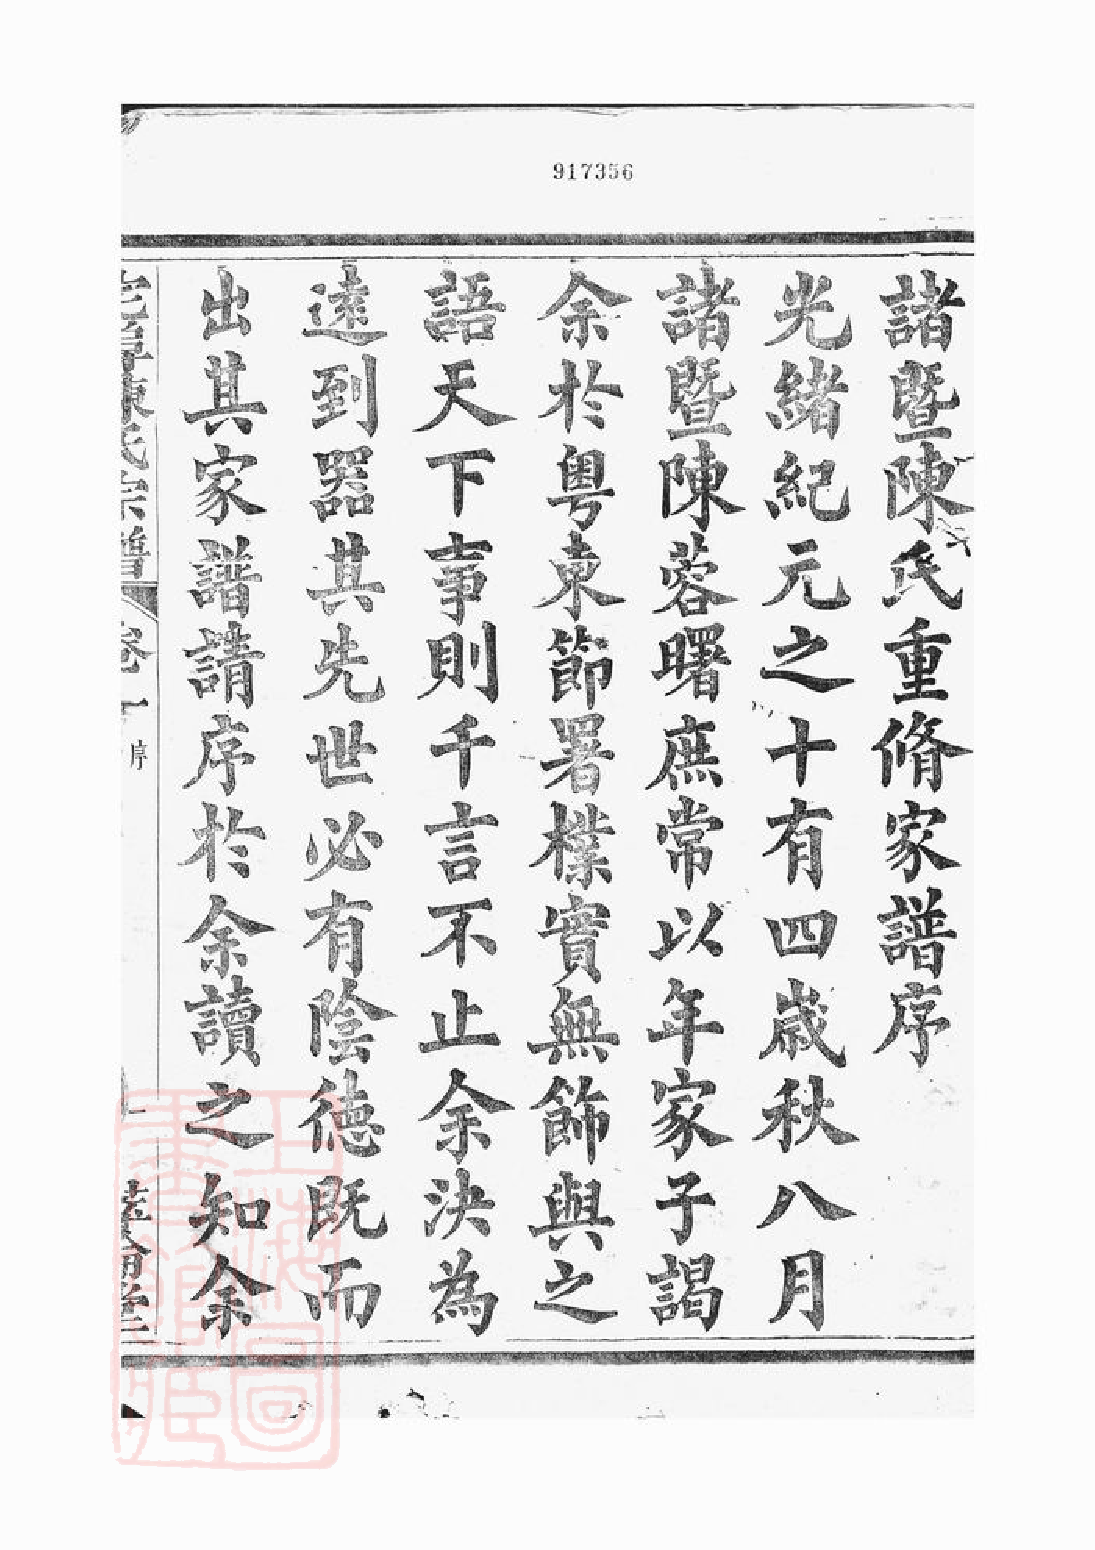 917356
諸曁陳氏重脩家譜序
光緒紀元之十有四歲秋八月
諸曁陳蓉曙庶常以年家子謁
余於粵東節署樸實無飾與之
語天下事則千言不止余決為
遠到器其先世必有陰德既而
出其家譜請序於余讀之知余
宅埠陳氏宗譜
卷一
序
上海圖書館藏